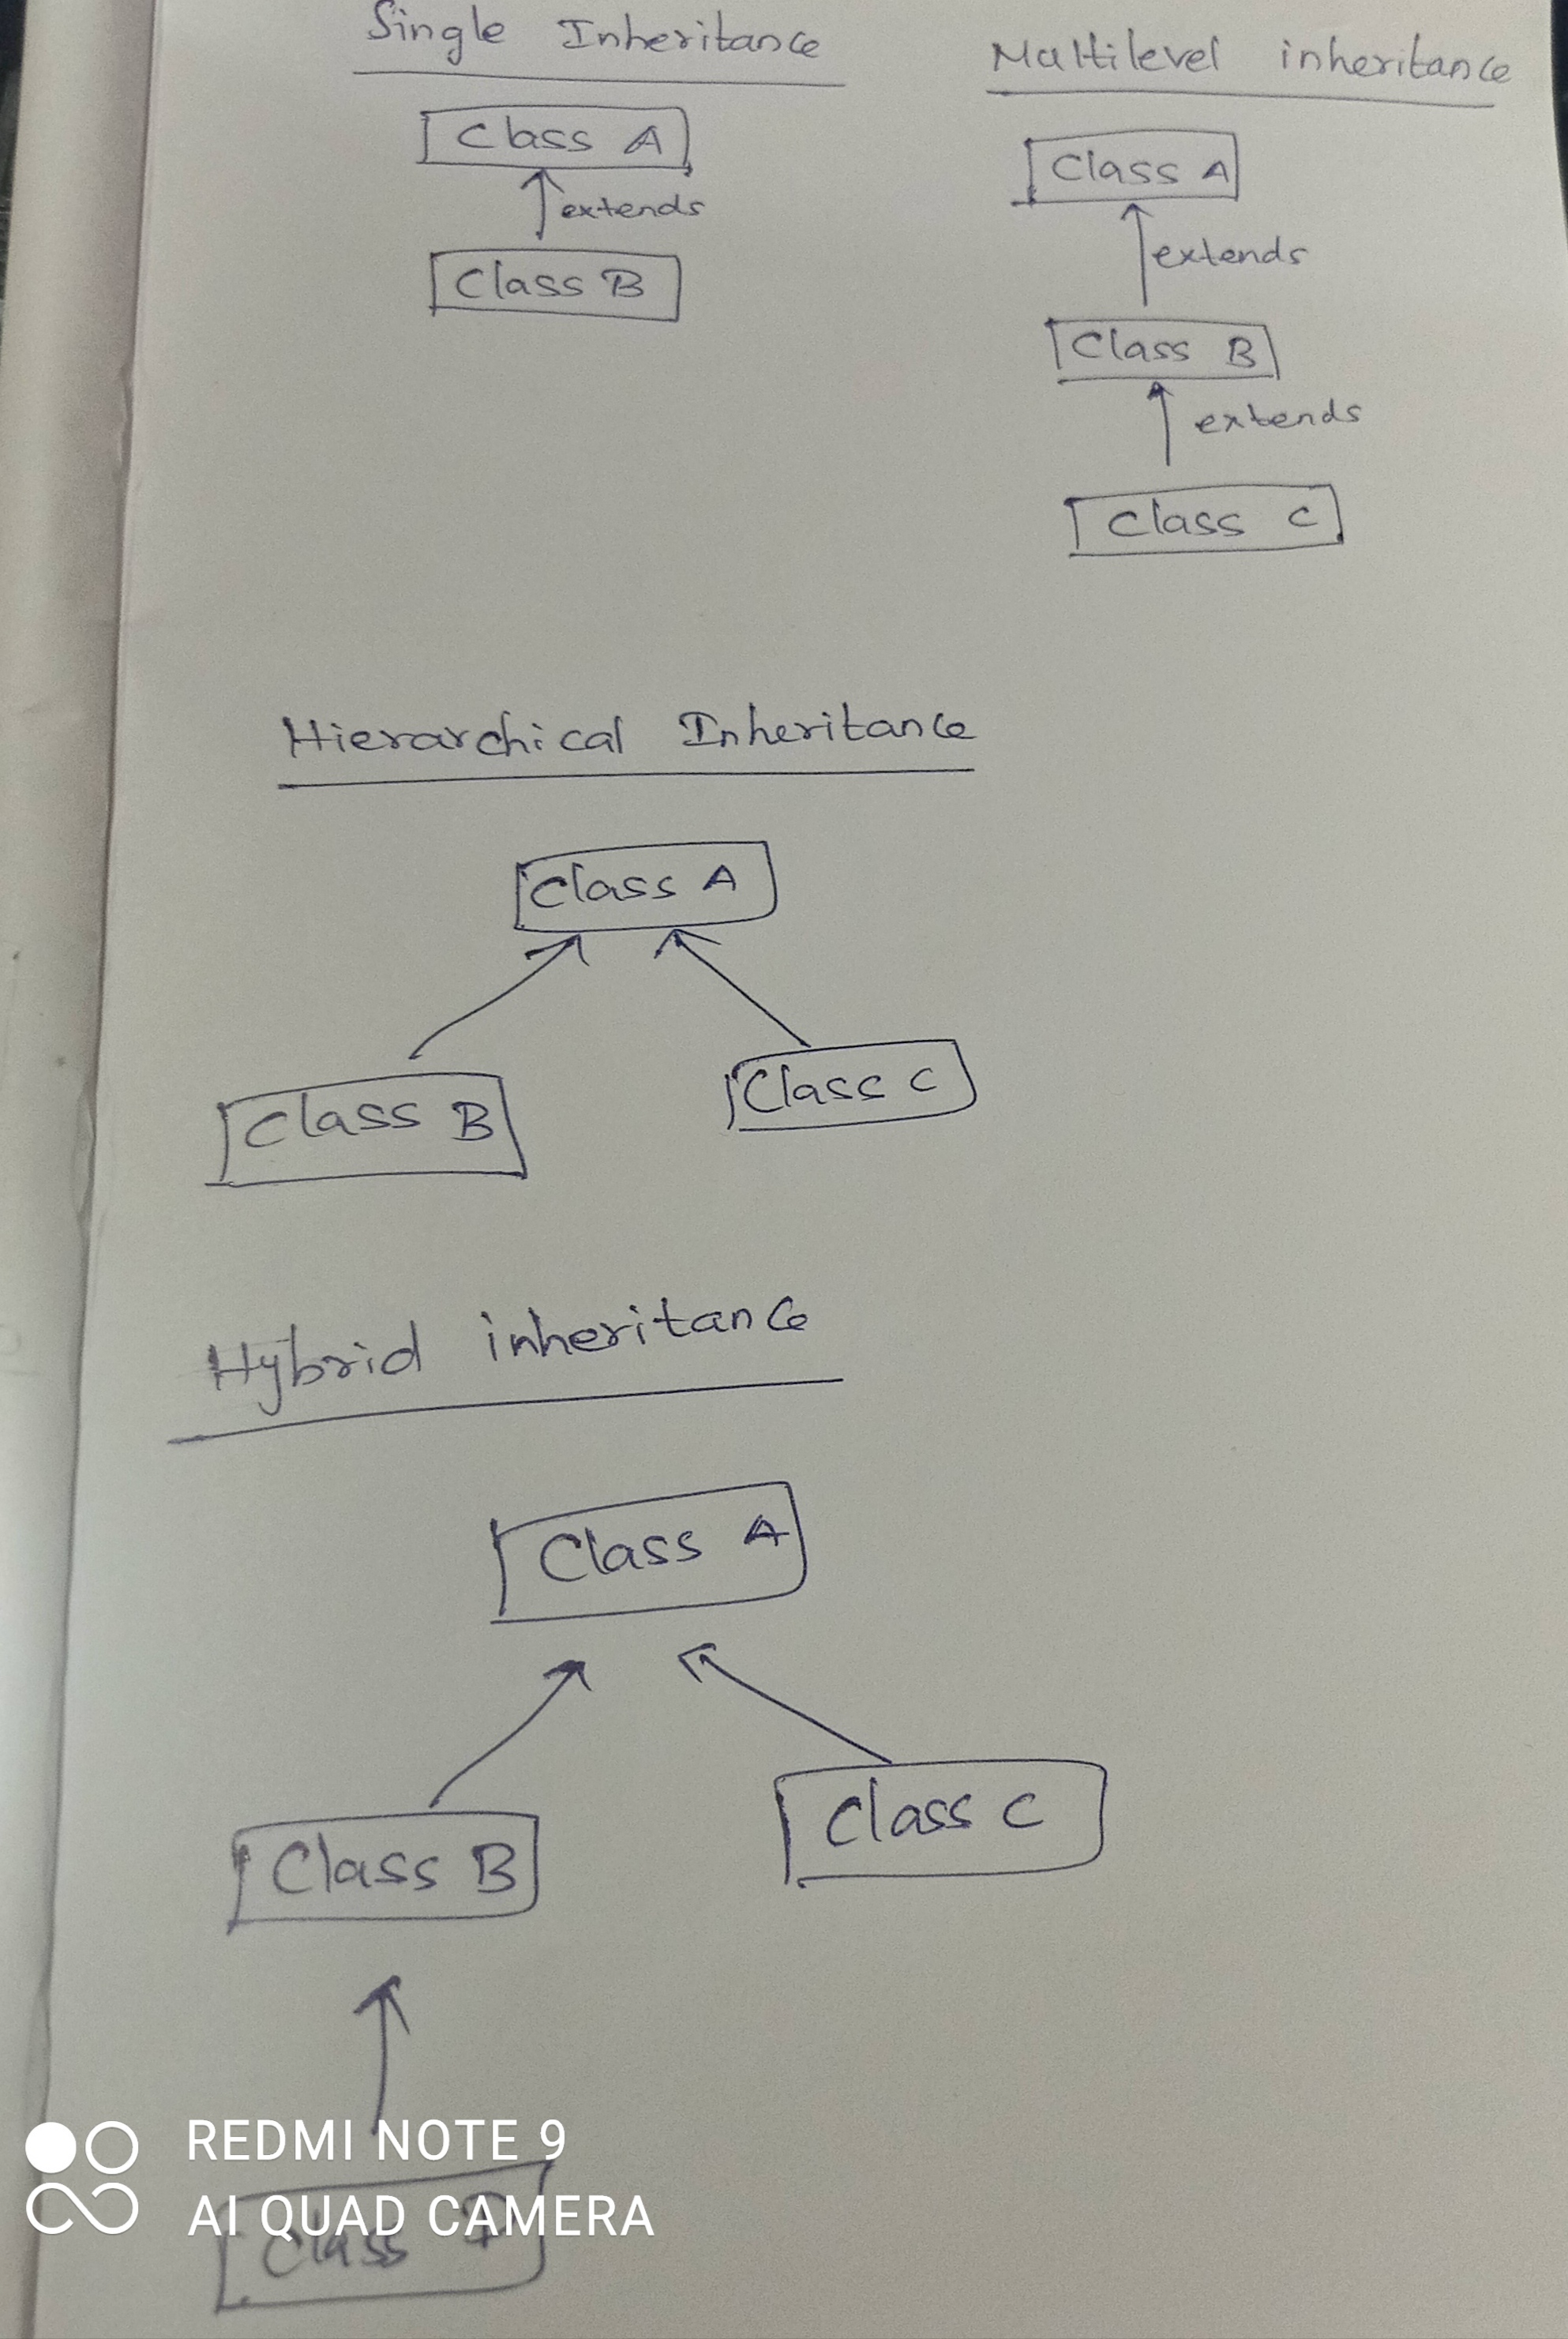 Single Inheritance
Class A
extends
Class B
Multilevel inheritance
Class A
extends
Class B
extends
Class C
Hierarchical Inheritance
Class A
Class B
Class C
Hybrid inheritance
Class A
Class B
Class C
REDMI NOTE 9
AI QUAD CAMERA
Class